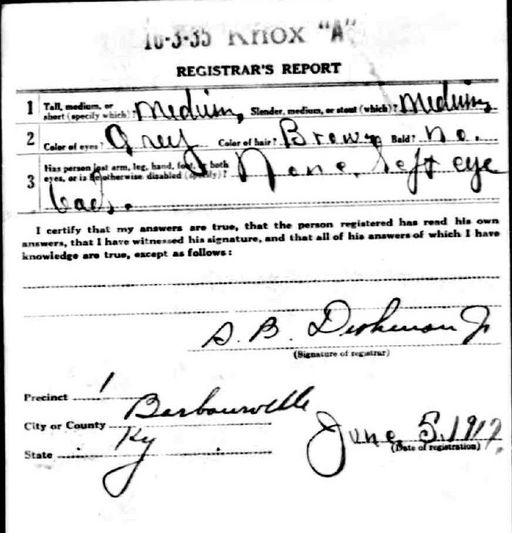 16-3-35 Knox "A"
REGISTRAR'S REPORT
1 Tall, medium, or short (specify which)? Medium, Slender, medium, or stout (which)? Medium,
2 Color of eyes? Grey Color of hair? Brown Bald? No.
3 Has person lost arm, leg, hand, foot, or both eyes, or is he otherwise disabled (specify)? None. Left eye
bad.
I certify that my answers are true, that the person registered has read his own
answers, that I have witnessed his signature, and that all of his answers of which I have
knowledge are true, except as follows:
S. B. Dishman Jr
(Signature of registrar)
Precinct 1
City or County Barbourville
State Ky
June 5, 1917.
(Date of registration)